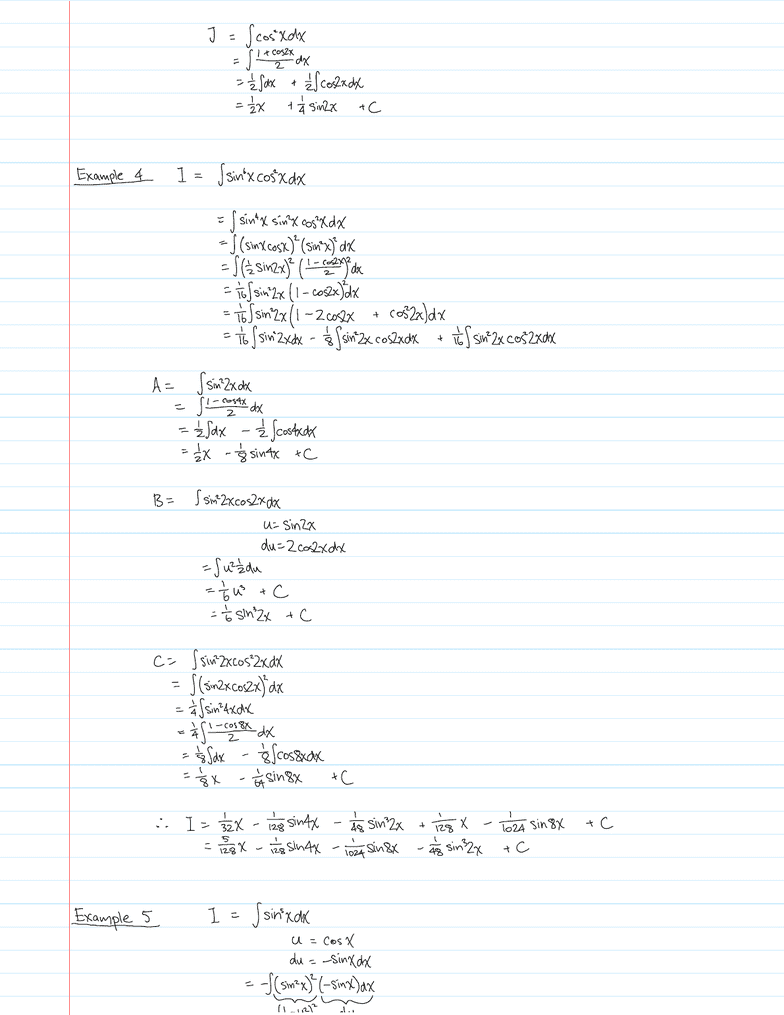 J = ∫cos²xdx
= ∫(1+cos2x)/2 dx
= ½∫dx + ½∫cos2xdx
= ½x + ¼sin2x + C
Example 4 I = ∫sin⁶xcos²xdx
= ∫sin⁴x sin²x cos²xdx
= ∫(sinxcosx)²(sin²x)²dx
= ∫(½sin2x)²((1-cos2x)/2)²dx
= 1/16∫sin²2x(1-cos2x)²dx
= 1/16∫sin²2x(1-2cos2x + cos²2x)dx
= 1/16∫sin²2xdx - 1/8∫sin²2xcos2xdx + 1/16∫sin²2xcos²2xdx
A = ∫sin²2xdx
= ∫(1-cos4x)/2 dx
= ½∫dx - ½∫cos4xdx
= ½x - 1/8 sin4x + C
B = ∫sin²2xcos2xdx
u = sin2x
du = 2cos2xdx
= ∫u²½du
= 1/6 u³ + C
= 1/6 sin³2x + C
C = ∫sin²2xcos²2xdx
= ∫(sin2xcos2x)²dx
= ¼∫sin²4xdx
= ¼∫(1-cos8x)/2 dx
= 1/8∫dx - 1/8∫cos8xdx
= 1/8 x - 1/64 sin8x + C
∴ I = 1/32 x - 1/128 sin4x - 1/48 sin³2x + 1/128 x - 1/1024 sin8x + C
= 5/128 x - 1/128 sin4x - 1/1024 sin8x - 1/48 sin³2x + C
Example 5 I = ∫sin⁵xdx
u = cosx
du = -sinxdx
= -∫(sin²x)²(-sinx)dx